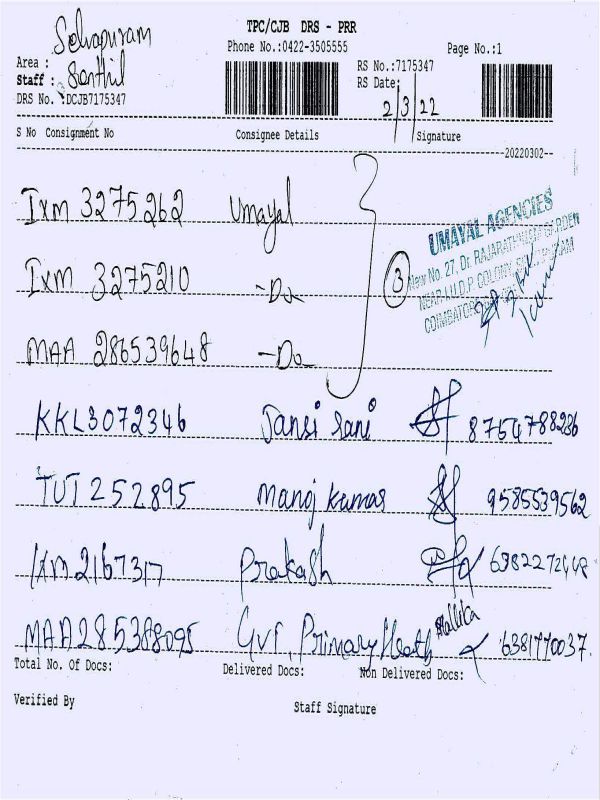 TPC/CJB DRS - PRR
Selvapuram
Phone No.:0422-3505555 Page No.:1
Area : RS No.:7175347
Staff : Senthil RS Date:
DRS No. :DCJB7175347 2/3/22
S No Consignment No Consignee Details Signature
20220302
IXM 3275262 Umayal
UMAYAL AGENCIES
New No. 27, Dr. RAJARATHINAM GARDEN
IXM 3275210 -Do
3
NEAR I.U.D.P COLONY
COIMBATORE
MAA 286539648 -Do
KKL3072346 Jansi Rani 8754788286
TUT 252895 Manoj Kumar 9585539562
IXM2167317 Prakash
MAA285388095 Gvt. Primary Heath Mallika 6381770037
Total No. Of Docs: Delivered Docs: Non Delivered Docs:
Verified By Staff Signature